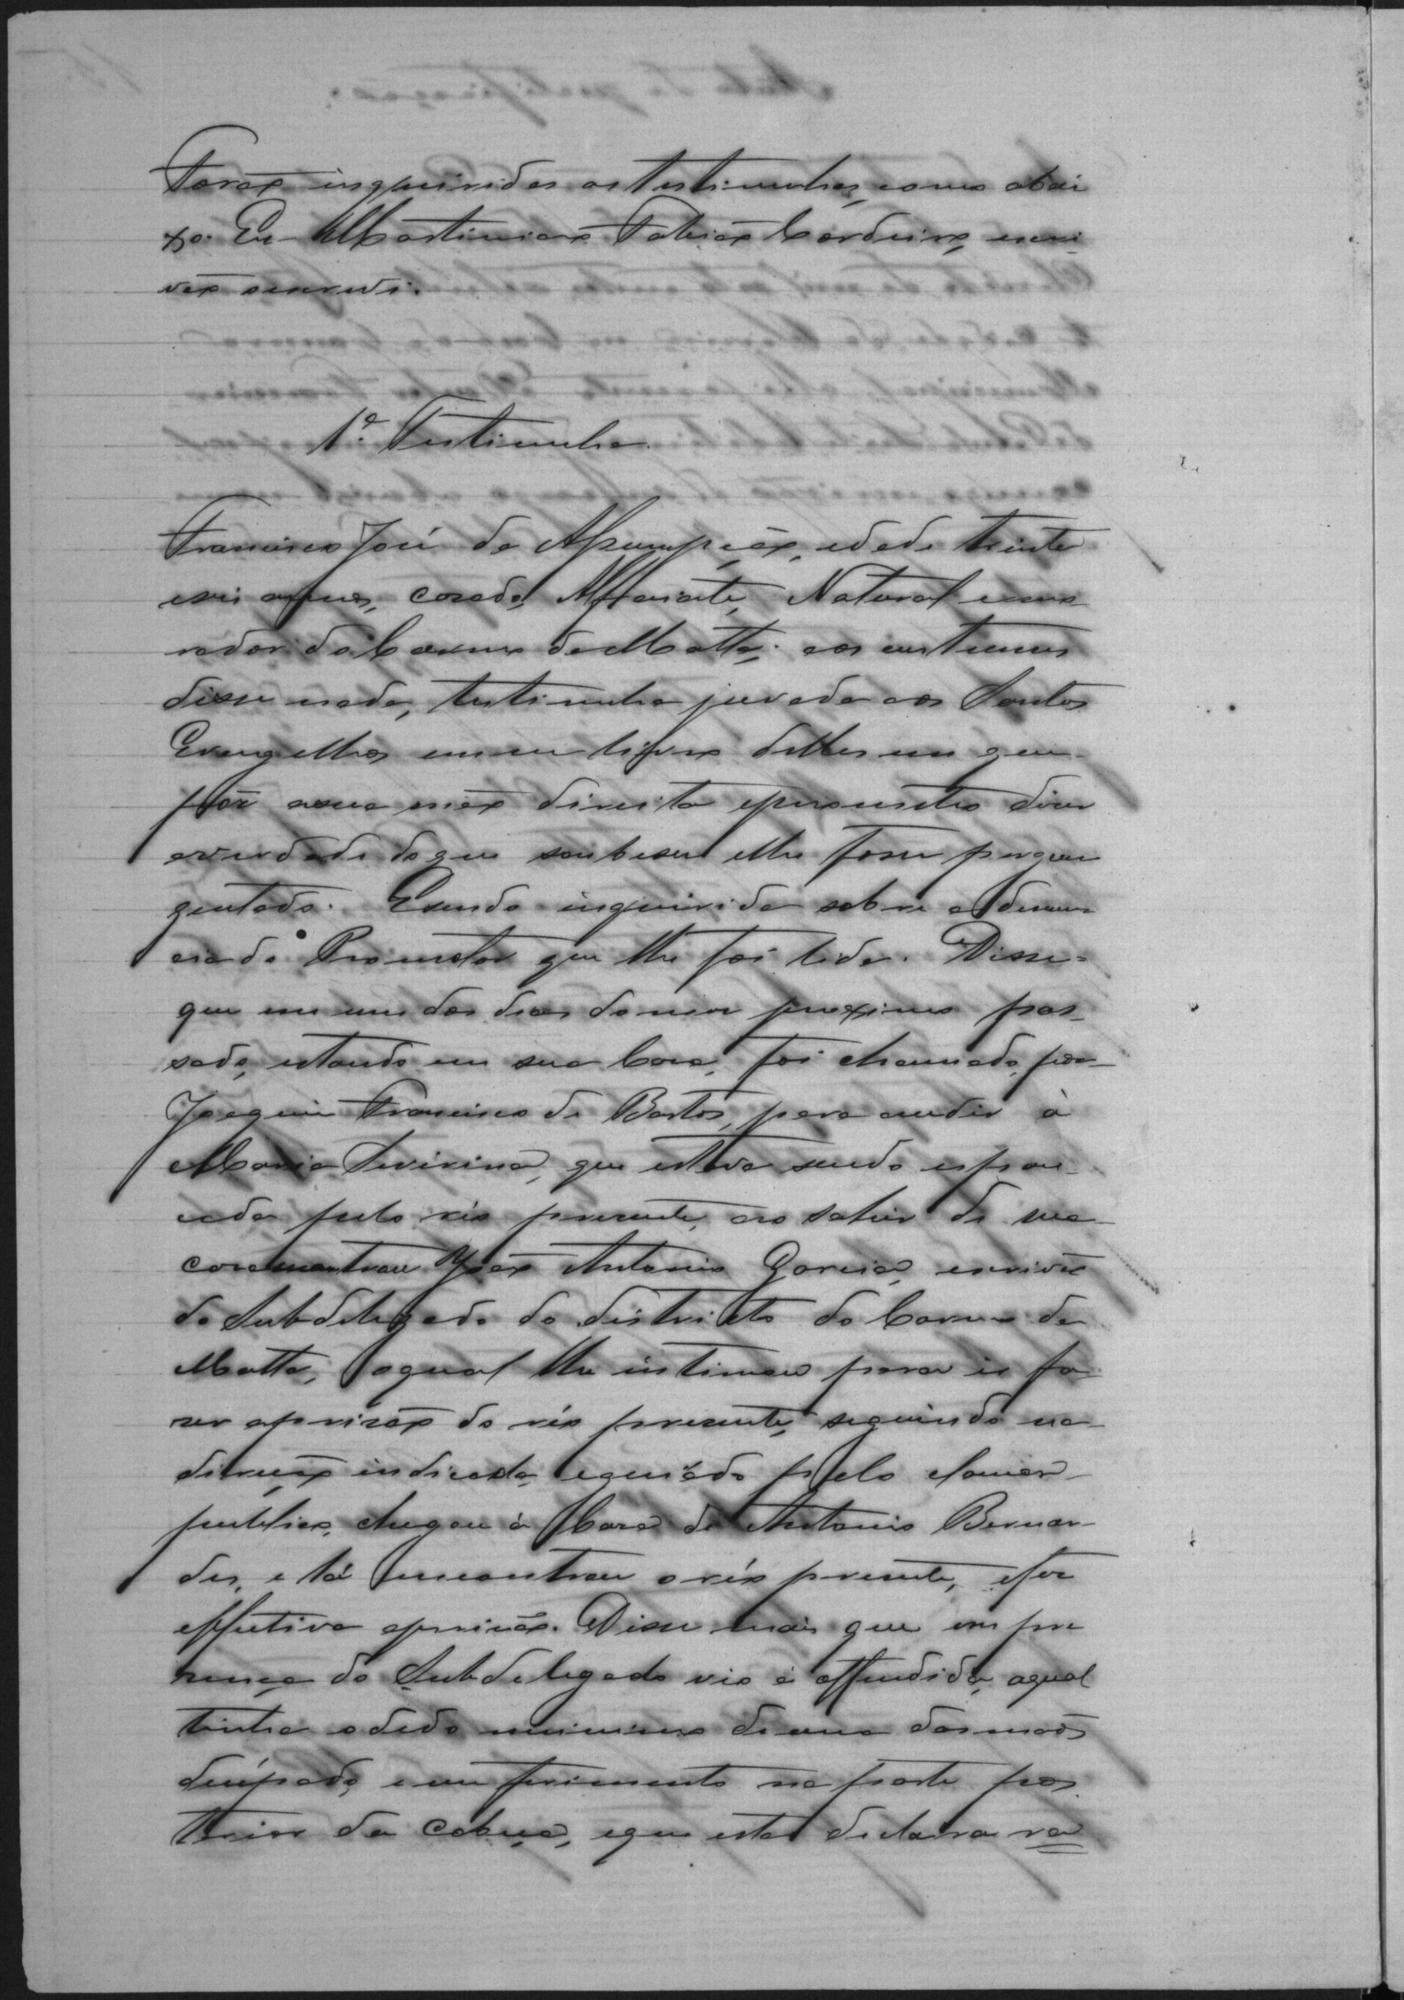 Forão inqueridas as testimunhas, como abai
xo. Eu Martiniano Fabião Cordeiro, escri-
vão oescrevi.
1ª. Testimunha
Francisco José da Assumpção, edade trinta
eseis annos, casado, Alfaiate, Natural emo-
rador do Carmo da Matta; aos custumes
disse nada, testimunha jurada aos Santos
Evangelhos em um livro delles em que
pôz asua mão direita eprometeo dizer
averdade doque soubesse elhe fosse pergun
guntado. Esendo inquirida sobre a denun
cia do Promotor que lhe foi lida. Disse-
que em um dos dias domez proximo pas-
sado, estando em sua Casa, foi chamado, por
Joaquim Francisco de Bastos, para acudir à
Maria Severina, que estava sendo espan-
cada pelo réo presente, ao sahir de sua
casa encontrou João Antonio Garcia, escrivão
do Subdelegado do districto do Carmo da
Matta, oqual lhe intimou para ir fa-
zer aprisão do réo presente, seguindo na
direção indicada, eguiado pelo clamor
publico, chegou à Casa de Antonio Bernar-
des, e lá encontrou o réo presente, efez
effectiva aprisão. Disse mais que em pre
sença do Subdelegado vio a offendida, aqual
tinha o dedo minimo de uma das mãos
decepado, eum ferimento na parte pos
terior da cabeça, eque esta declarara